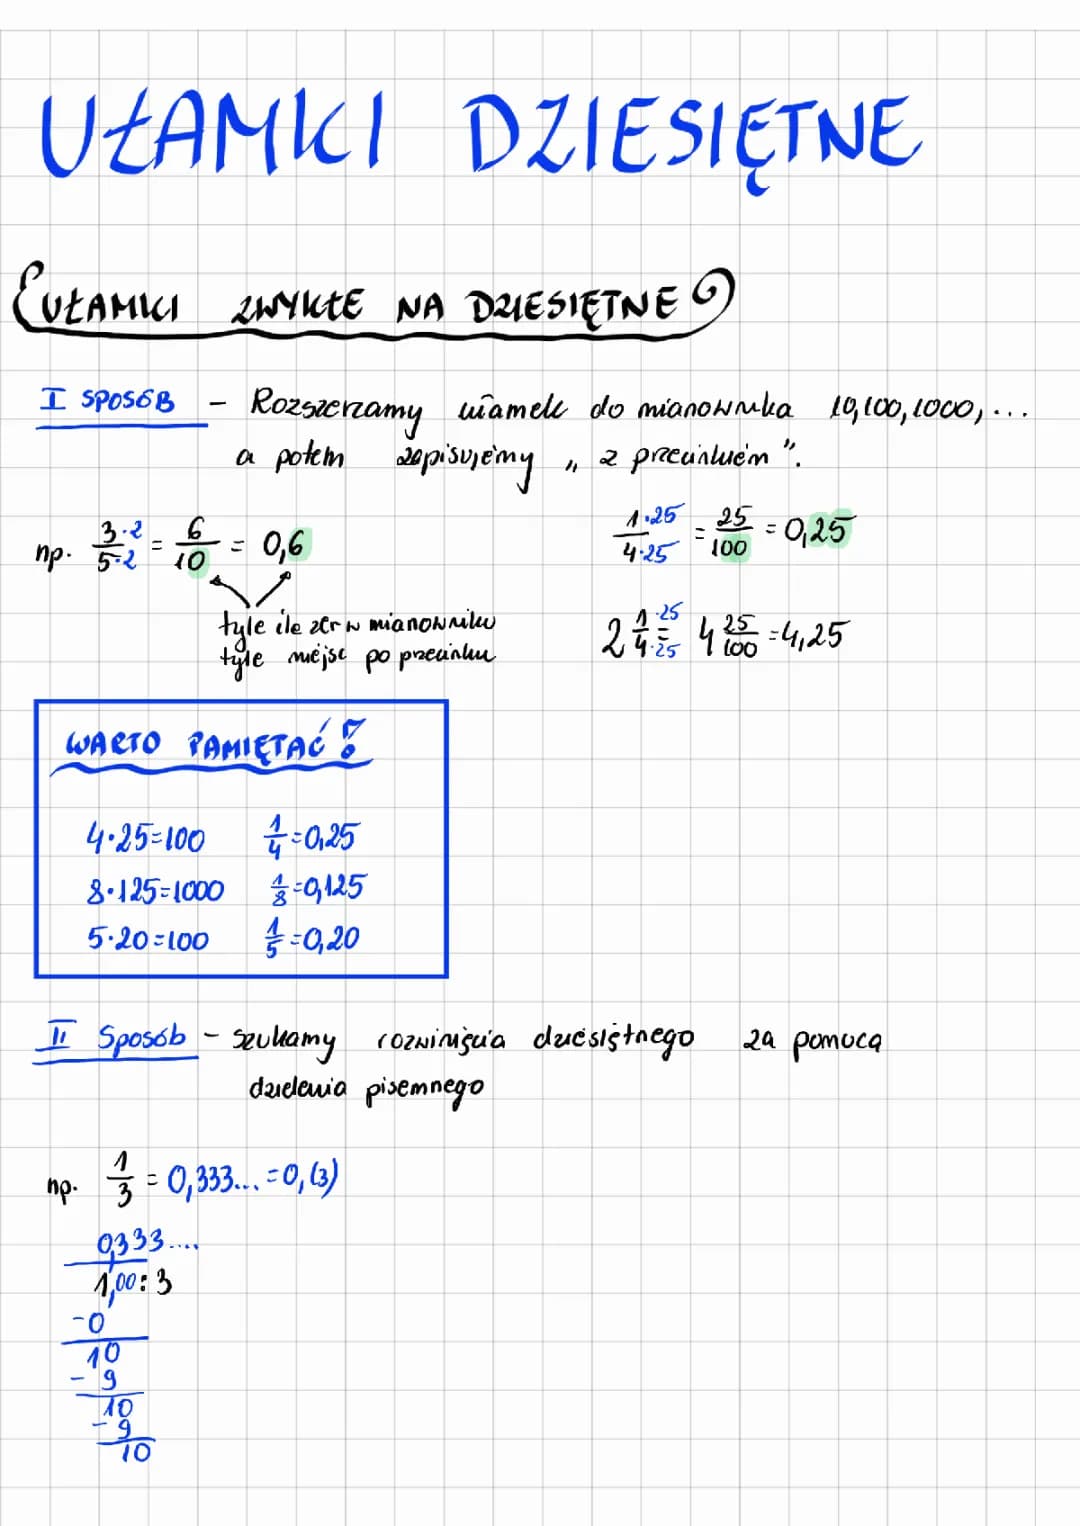 UŁAMKI DZIESIĘTNE
UŁAMKI ZWYKŁE NA DZIESIĘTNE
I SPOSÓB - Rozszerzamy ułamek do mianownika 10,100,1000,...
a potem zapisujemy „z przecinkiem".
np. 3·2/5·2 = 6/10 = 0,6
1·25/4·25 = 25/100 = 0,25
tyle ile zer w mianowniku
tyle miejsc po przecinku
2 1·25/4·25 = 4 25/100 = 4,25
WARTO PAMIĘTAĆ!
4·25=100 1/4=0,25
8·125=1000 1/8=0,125
5·20=100 1/5=0,20
II Sposób - Szukamy rozwinięcia dziesiętnego za pomocą
dzielenia pisemnego
np. 1/3 = 0,333... = 0,(3)
0,333....
1,00:3
-0
10
- 9
10
- 9
10